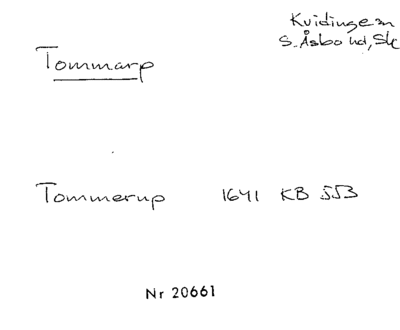 Kvidinge sn
S. Åsbo hd, Sk
Tommarp
Tommerup 1641 KB 553
Nr 20661